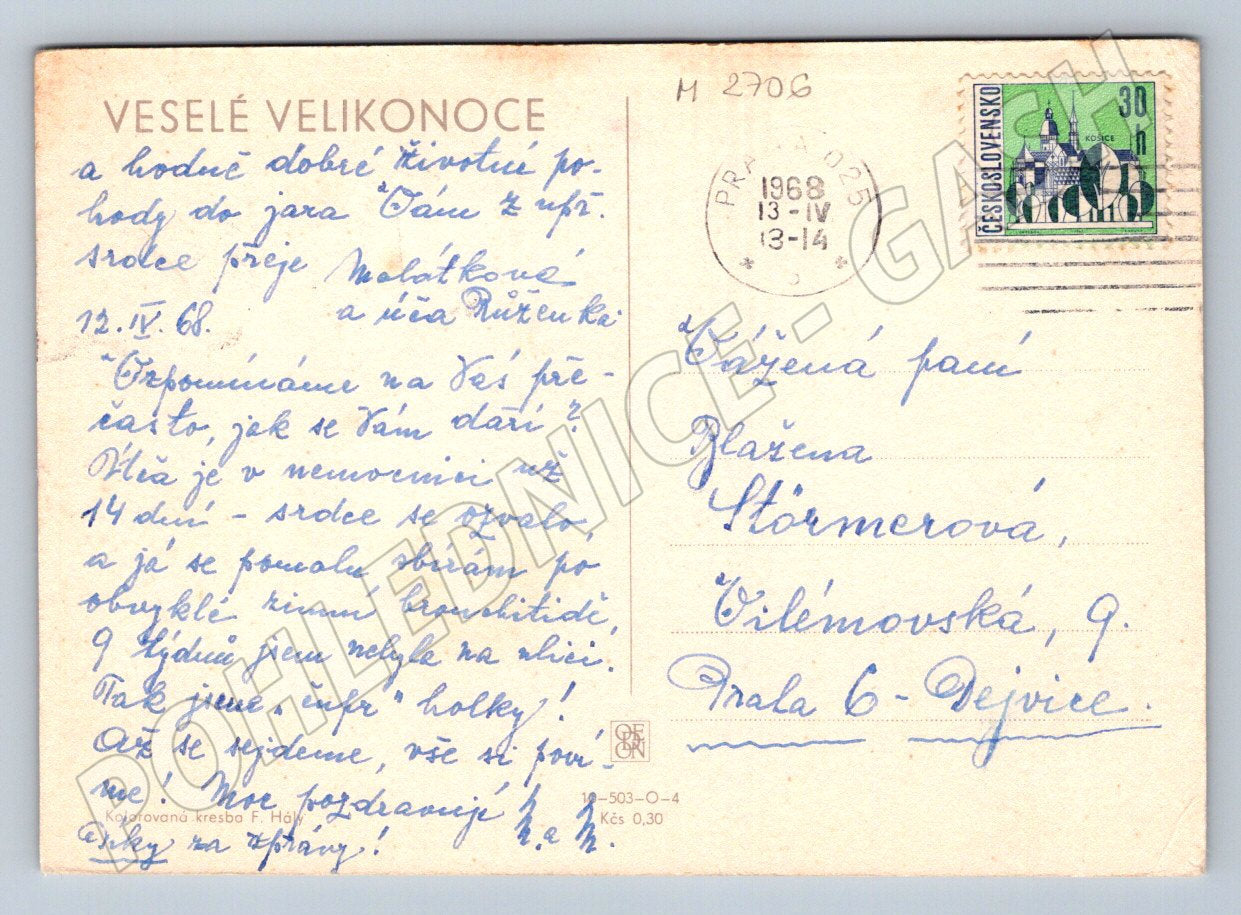 M 2706
VESELÉ VELIKONOCE
a hodně dobré životní po-
hody do jara Vám z upř.
srdce přeje Malátková
12.IV.68. a úča Růženka
Vzpomínáme na Vás pře-
často, jak se Vám daří?
Úča je v nemocnici už
14 dní - srdce se ozvalo,
a já se pomalu sbírám po
obvyklé zimní bronchitidě,
9 týdnů jsem nebyla na ulici.
Tak jsme "čupr" holky!
Až se sejdeme, vše si poví-
me! Moc pozdravují
za zprávy!
Kolorovaná kresba F. Hály
ODEON
10-503-O-4
Kčs 0,30
PRAHA 025
1968
13-IV
13-14
ČESKOSLOVENSKO
30 h
KOŠICE
Vážená paní
Blažena
Störmerová,
Vilémovská, 9.
Praha 6 - Dejvice.
POHLEDNICE - GASH